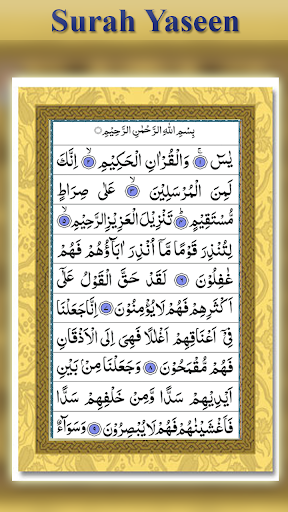 Surah Yaseen
بِسْمِ اللّٰهِ الرَّحْمٰنِ الرَّحِيْمِ
يٰسٓ ۚ ۱ وَالْقُرْاٰنِ الْحَكِيْمِ ۙ ۲ اِنَّكَ
لَمِنَ الْمُرْسَلِيْنَ ۙ ۳ عَلٰى صِرَاطٍ
مُّسْتَقِيْمٍ ؕ ۴ تَنْزِيْلَ الْعَزِيْزِ الرَّحِيْمِ ۙ ۵
لِتُنْذِرَ قَوْمًا مَّاۤ اُنْذِرَ اٰبَآؤُهُمْ فَهُمْ
غٰفِلُوْنَ ۶ لَقَدْ حَقَّ الْقَوْلُ عَلٰٓى
اَكْثَرِهِمْ فَهُمْ لَا يُؤْمِنُوْنَ ۷ اِنَّا جَعَلْنَا
فِيْۤ اَعْنَاقِهِمْ اَغْلٰلًا فَهِيَ اِلَى الْاَذْقَانِ
فَهُمْ مُّقْمَحُوْنَ ۸ وَجَعَلْنَا مِنْۢ بَيْنِ
اَيْدِيْهِمْ سَدًّا وَّمِنْ خَلْفِهِمْ سَدًّا
فَاَغْشَيْنٰهُمْ فَهُمْ لَا يُبْصِرُوْنَ ۹ وَسَوَآءٌ